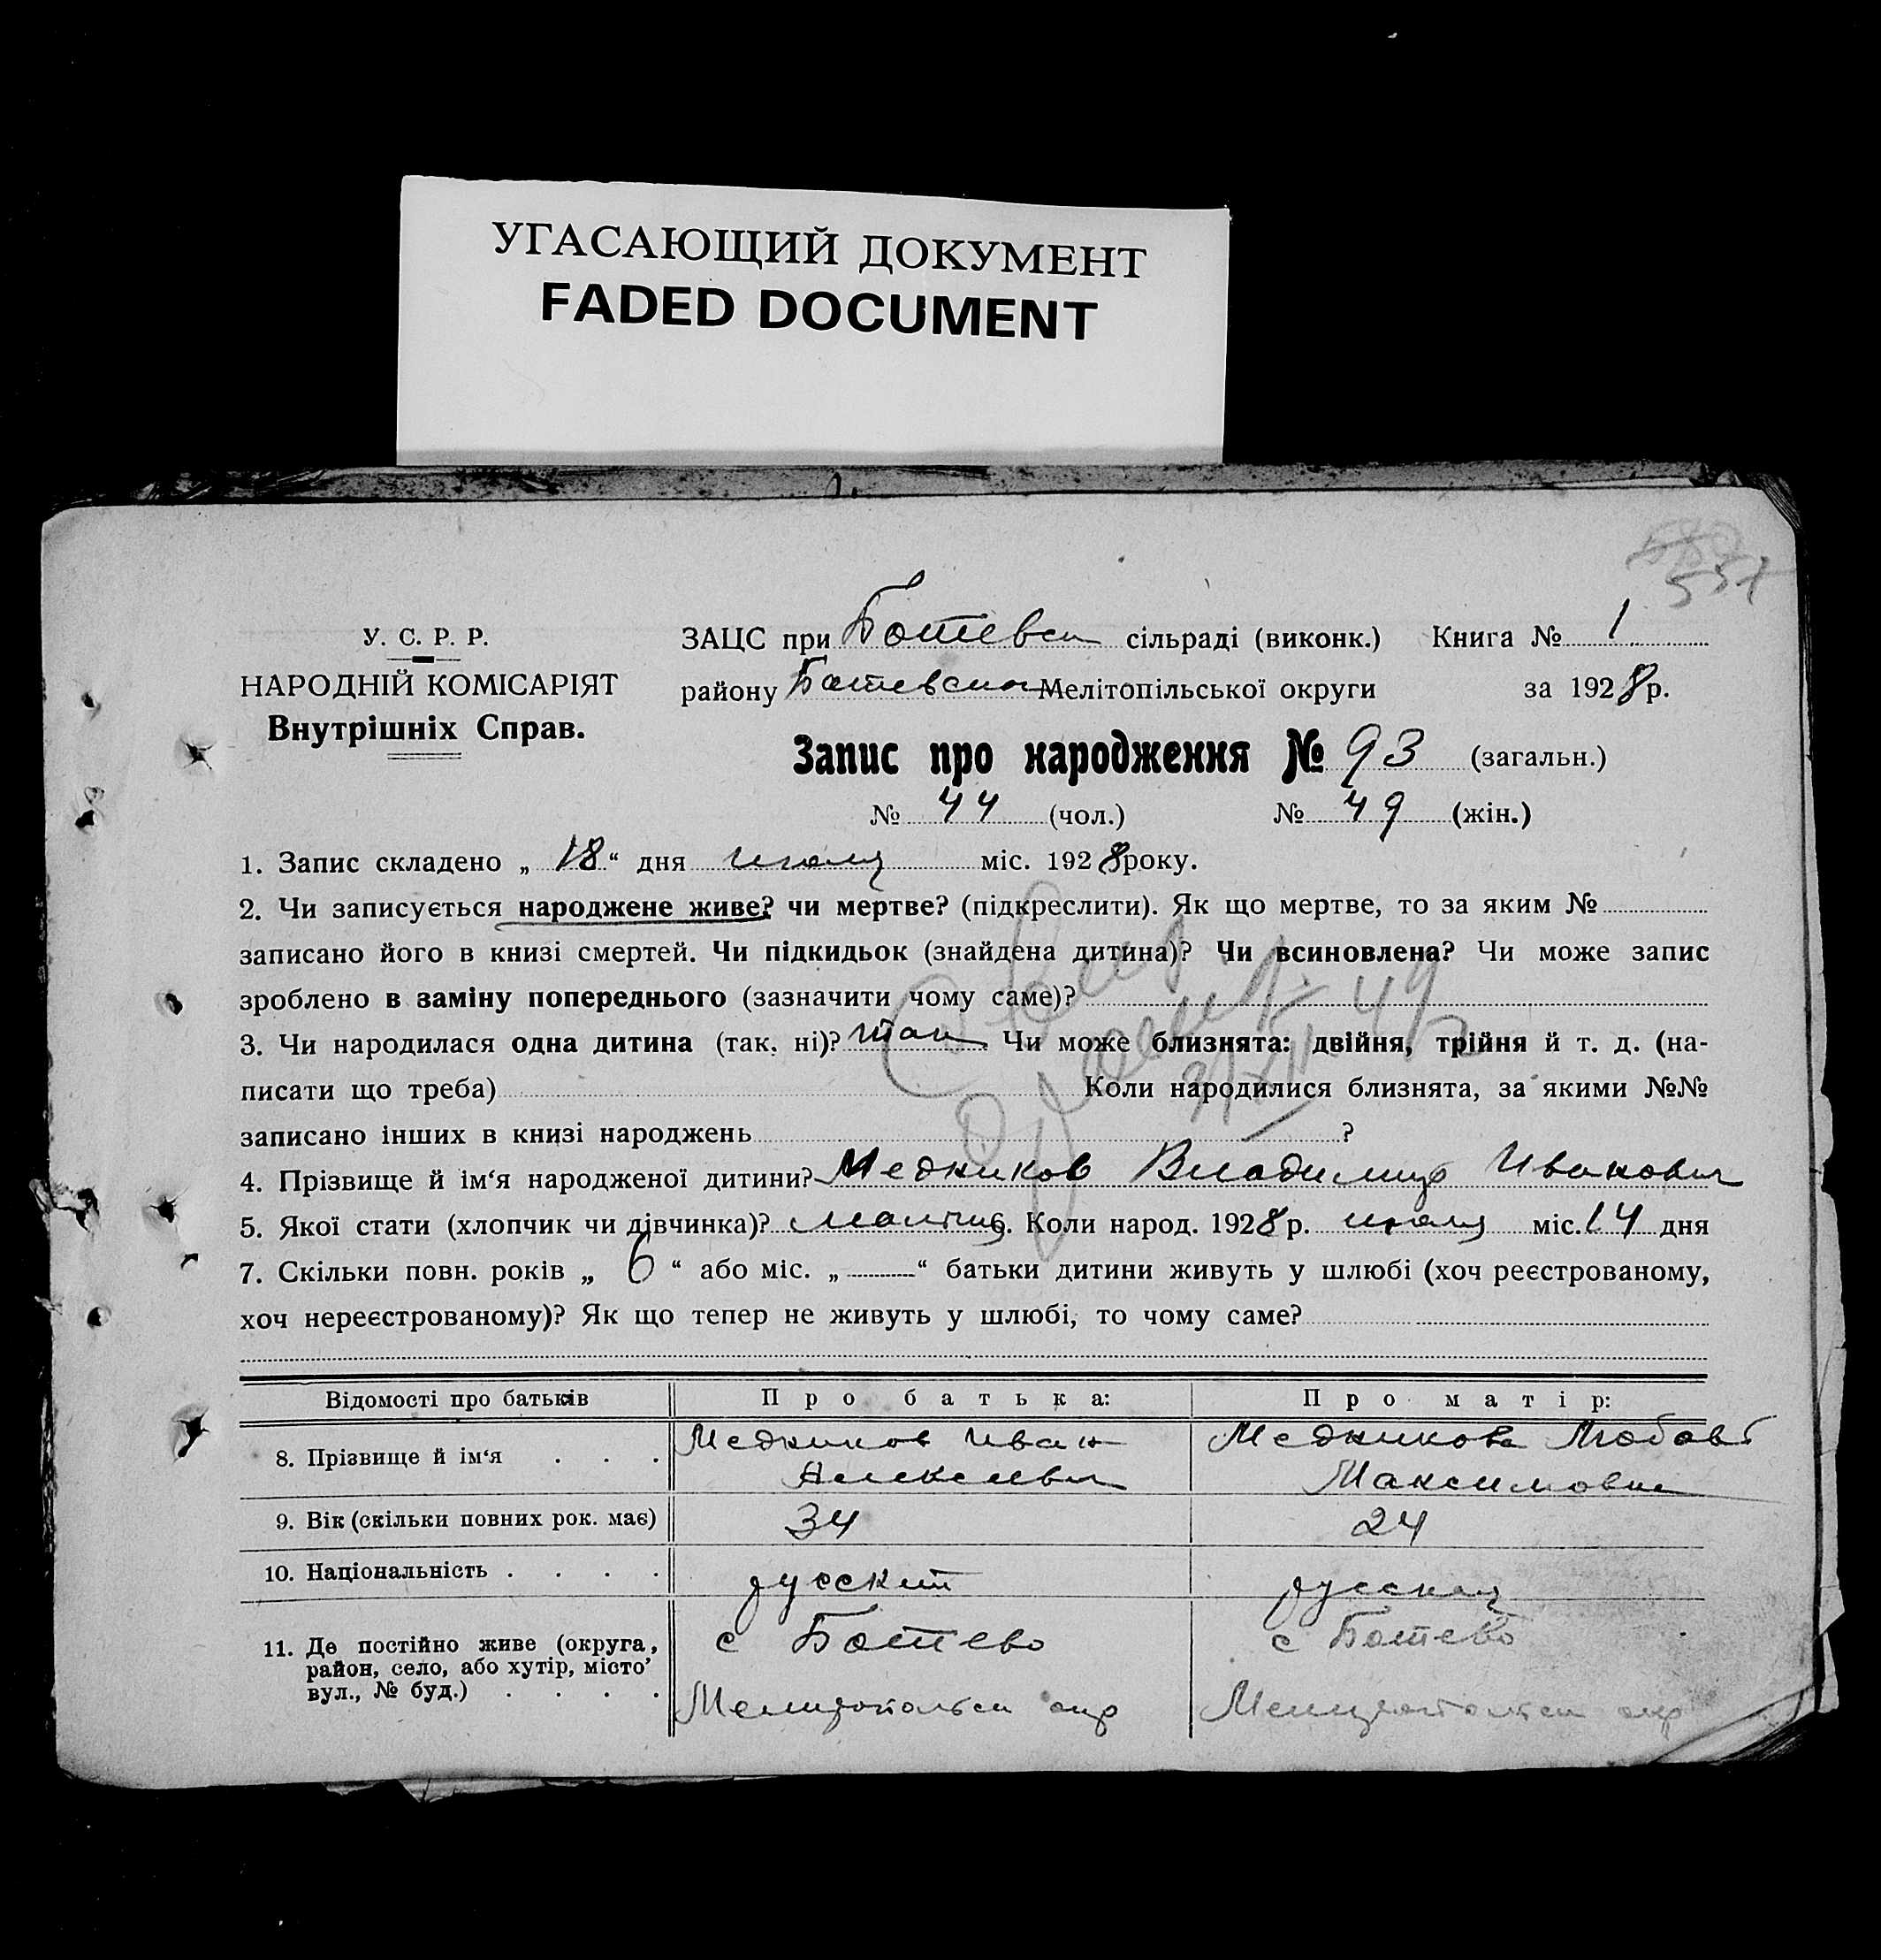 УГАСАЮЩИЙ ДОКУМЕНТ
FADED DOCUMENT
557
У. С. Р. Р.
НАРОДНІЙ КОМІСАРІЯТ
Внутрішніх Справ.
ЗАЦС при Ботевск сільраді (виконк.) Книга № 1
району Ботевском Мелітопільської округи за 1928 р.
Запис про народження № 93 (загальн.)
№ 44 (чол.) № 49 (жін.)
1. Запис складено „ 18 “ дня июля міс. 1928 року.
2. Чи записується народжене живе? чи мертве? (підкреслити). Як що мертве, то за яким №
записано його в книзі смертей. Чи підкидьок (знайдена дитина)? Чи всиновлена? Чи може запис
зроблено в заміну попереднього (зазначити чому саме)?
3. Чи народилася одна дитина (так, ні)? так Чи може близнята: двійня, трійня й т. д. (на-
писати що треба) Коли народилися близнята, за якими №№
записано інших в книзі народжень ?
4. Прізвище й ім‘я народженої дитини? Медников Владимир Иванович
5. Якої стати (хлопчик чи дівчинка)? мальчик. Коли народ. 1928 р. июля міс. 14 дня
7. Скільки повн. років „ 6 “ або міс. „ — “ батьки дитини живуть у шлюбі (хоч реєстрованому,
хоч нереєстрованому)? Як що тепер не живуть у шлюбі, то чому саме?
Відомості про батьків Про батька: Про матір:
8. Прізвище й ім‘я . . . Медников Иван Алексеевич Медникова Любовь Максимовна
9. Вік (скільки повних рок. має) 34 24
10. Національність . . . . русский русская
11. Де постійно живе (округа, район, село, або хутір, місто, вул., № буд.) . . . . с Ботево Мелитопольск окр с Ботево Мелитопольск окр